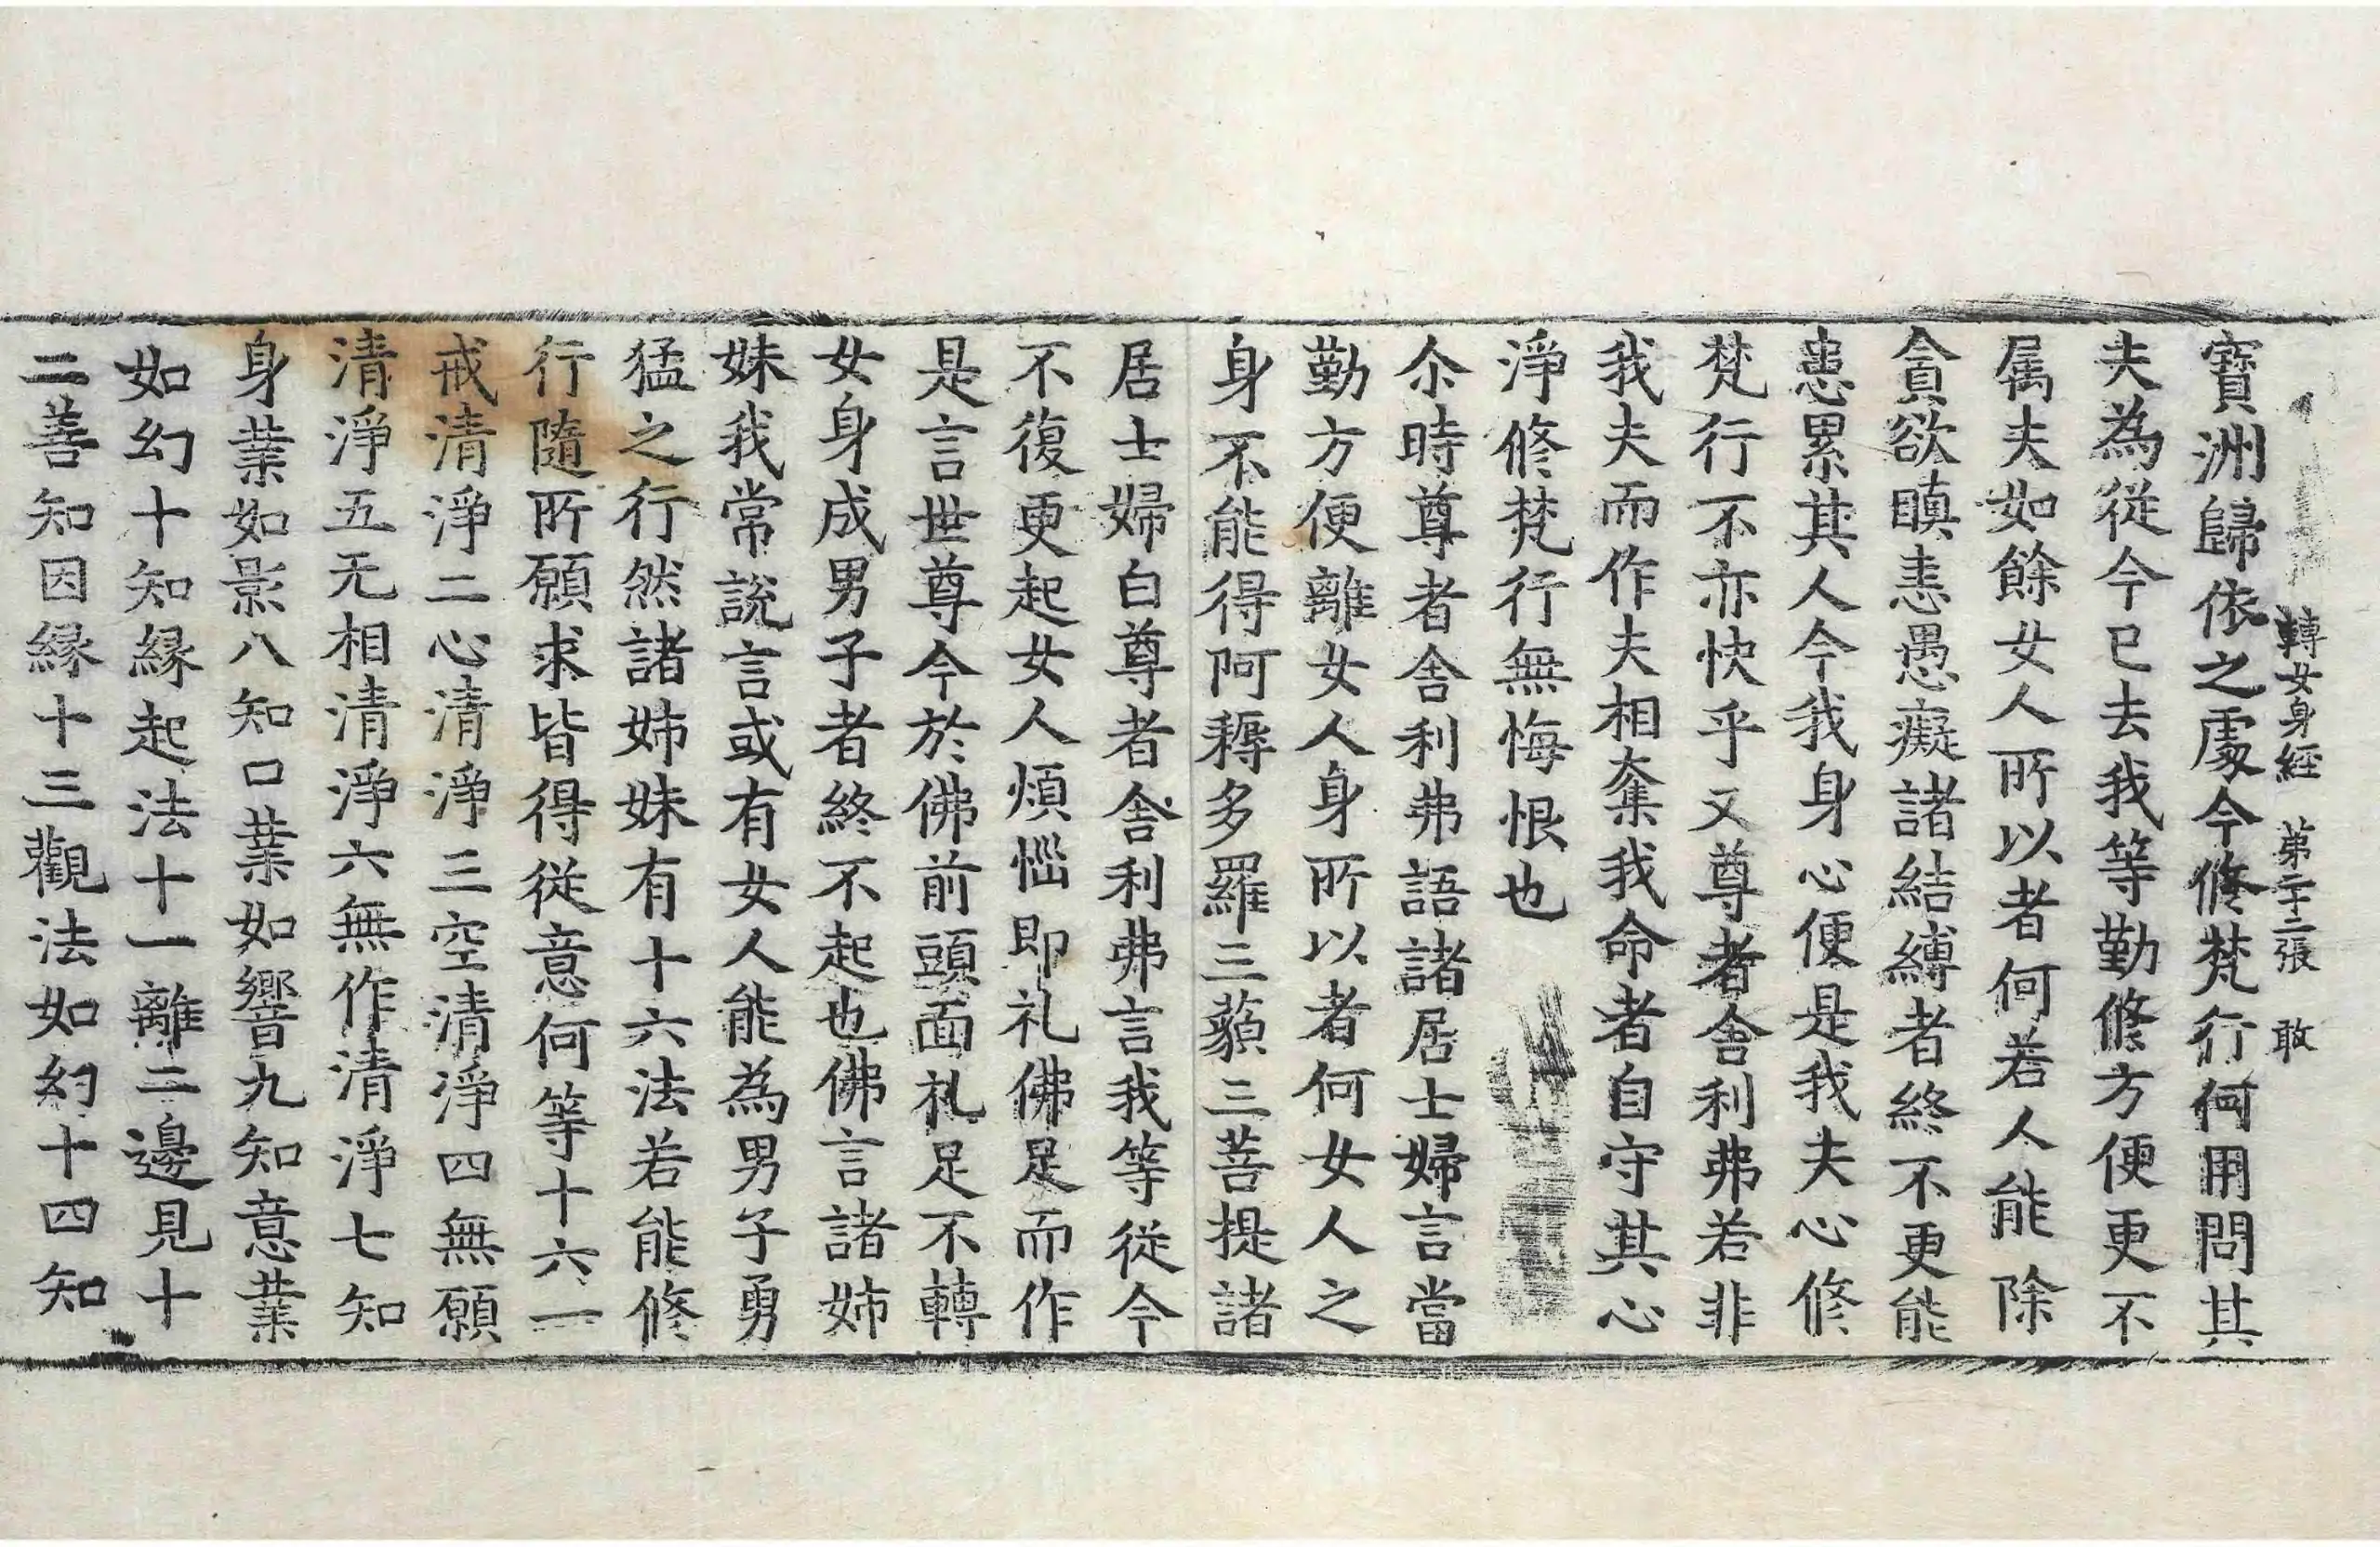 轉女身經 第二十二張 敢
寶洲歸依之處今修梵行何用問其
夫為從今已去我等勤修方便更不
属夫如餘女人所以者何若人能除
貪欲瞋恚愚癡諸結縛者終不更能
患累其人今我身心便是我夫心修
梵行不亦快乎又尊者舍利弗若非
我夫而作夫相奪我命者自守其心
淨修梵行無悔恨也
尒時尊者舍利弗語諸居士婦言當
勤方便離女人身所以者何女人之
身不能得阿耨多羅三藐三菩提諸
居士婦白尊者舍利弗言我等從今
不復更起女人煩惱即礼佛足而作
是言世尊今於佛前頭面礼足不轉
女身成男子者終不起也佛言諸姊
妹我常說言或有女人能為男子勇
猛之行然諸姊妹有十六法若能修
行隨所願求皆得從意何等十六一
戒清淨二心清淨三空清淨四無願
清淨五无相清淨六無作清淨七知
身業如影八知口業如響九知意業
如幻十知縁起法十一離二邊見十
二善知因縁十三觀法如幻十四知